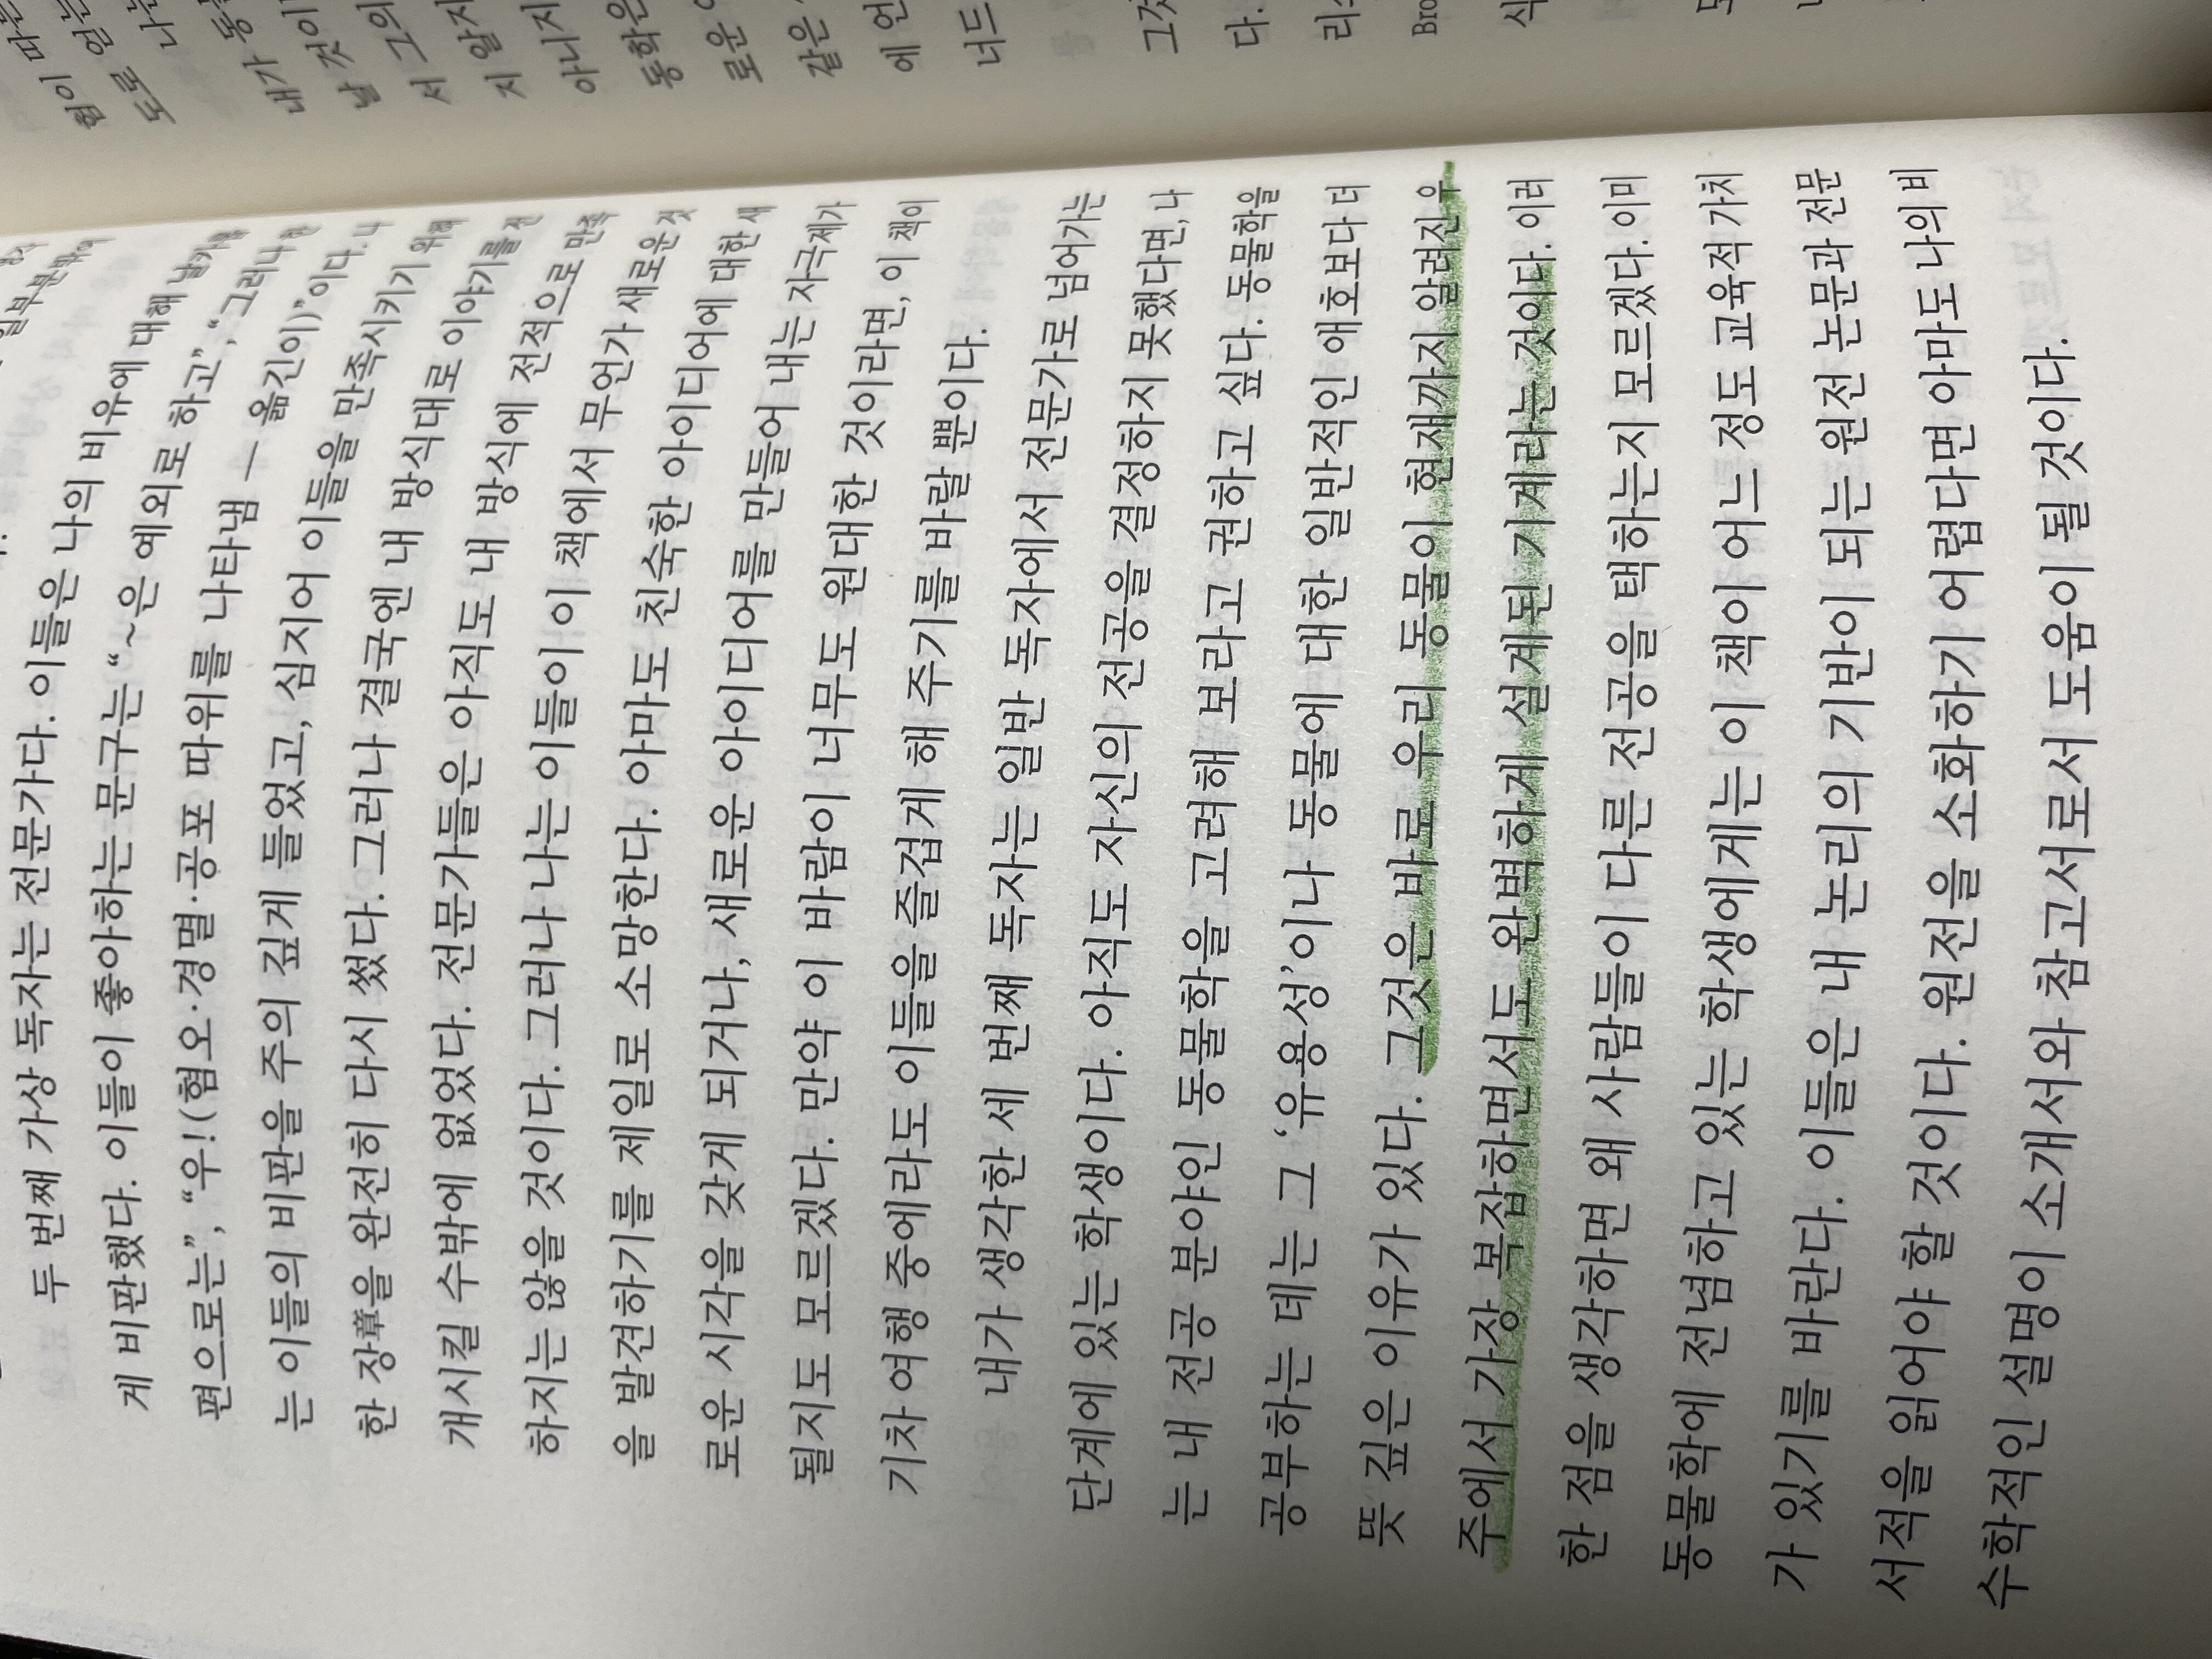 두 번째 가상 독자는 전문가다. 이들은 나의 비유에 대해
게 비판했다. 이들이 좋아하는 문구는 “~은 예외로 하고”, “그러나
편으로는”, “우!(혐오·경멸·공포 따위를 나타냄 — 옮긴이)”이다. 나
는 이들의 비판을 주의 깊게 들었고, 심지어 이들을 만족시키기 위해
한 장章을 완전히 다시 썼다. 그러나 결국엔 내 방식대로 이야기를 전
개시킬 수밖에 없었다. 전문가들은 아직도 내 방식에 전적으로 만족
하지는 않을 것이다. 그러나 나는 이들이 이 책에서 무언가 새로운 것
을 발견하기를 제일로 소망한다. 아마도 친숙한 아이디어에 대한 새
로운 시각을 갖게 되거나, 새로운 아이디어를 만들어 내는 자극제가
될지도 모르겠다. 만약 이 바람이 너무도 원대한 것이라면, 이 책이
기차 여행 중에라도 이들을 즐겁게 해 주기를 바랄 뿐이다.
내가 생각한 세 번째 독자는 일반 독자에서 전문가로 넘어가는
단계에 있는 학생이다. 아직도 자신의 전공을 결정하지 못했다면, 나
는 내 전공 분야인 동물학을 고려해 보라고 권하고 싶다. 동물학을
공부하는 데는 그 ‘유용성’이나 동물에 대한 일반적인 애호보다 더
뜻 깊은 이유가 있다. 그것은 바로 우리 동물이 현재까지 알려진 우
주에서 가장 복잡하면서도 완벽하게 설계된 기계라는 것이다. 이러
한 점을 생각하면 왜 사람들이 다른 전공을 택하는지 모르겠다. 이미
동물학에 전념하고 있는 학생에게는 이 책이 어느 정도 교육적 가치
가 있기를 바란다. 이들은 내 논리의 기반이 되는 원전 논문과 전문
서적을 읽어야 할 것이다. 원전을 소화하기 어렵다면 아마도 나의 비
수학적인 설명이 소개서와 참고서로서 도움이 될 것이다.